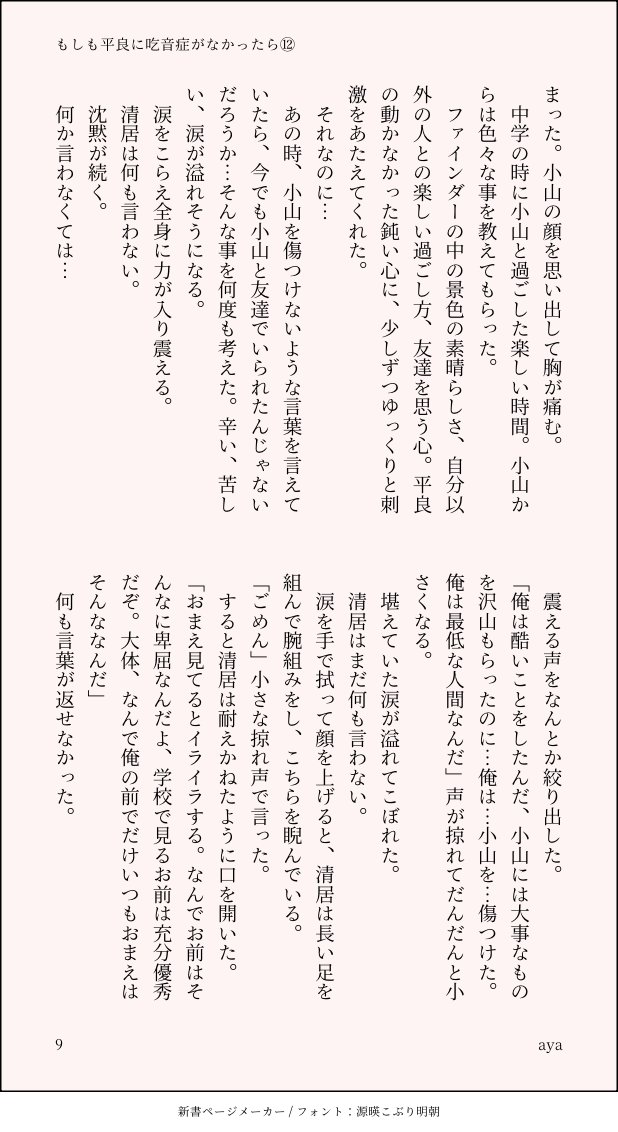 もしも平良に吃音症がなかったら⑫
まった。小山の顔を思い出して胸が痛む。
中学の時に小山と過ごした楽しい時間。小山か
らは色々な事を教えてもらった。
ファインダーの中の景色の素晴らしさ、自分以
外の人との楽しい過ごし方、友達を思う心。平良
の動かなかった鈍い心に、少しずつゆっくりと刺
激をあたえてくれた。
それなのに…
あの時、小山を傷つけないような言葉を言えて
いたら、今でも小山と友達でいられたんじゃない
だろうか…そんな事を何度も考えた。辛い、苦し
い、涙が溢れそうになる。
涙をこらえ全身に力が入り震える。
清居は何も言わない。
沈黙が続く。
何か言わなくては…
震える声をなんとか絞り出した。
「俺は酷いことをしたんだ、小山には大事なもの
を沢山もらったのに…俺は…小山を…傷つけた。
俺は最低な人間なんだ」声が掠れてだんだんと小
さくなる。
堪えていた涙が溢れてこぼれた。
清居はまだ何も言わない。
涙を手で拭って顔を上げると、清居は長い足を
組んで腕組みをし、こちらを睨んでいる。
「ごめん」小さな掠れ声で言った。
すると清居は耐えかねたように口を開いた。
「おまえ見てるとイライラする。なんでお前はそ
んなに卑屈なんだよ、学校で見るお前は充分優秀
だぞ。大体、なんで俺の前でだけいつもおまえは
そんななんだ」
何も言葉が返せなかった。
9
aya
新書ページメーカー / フォント：源暎こぶり明朝